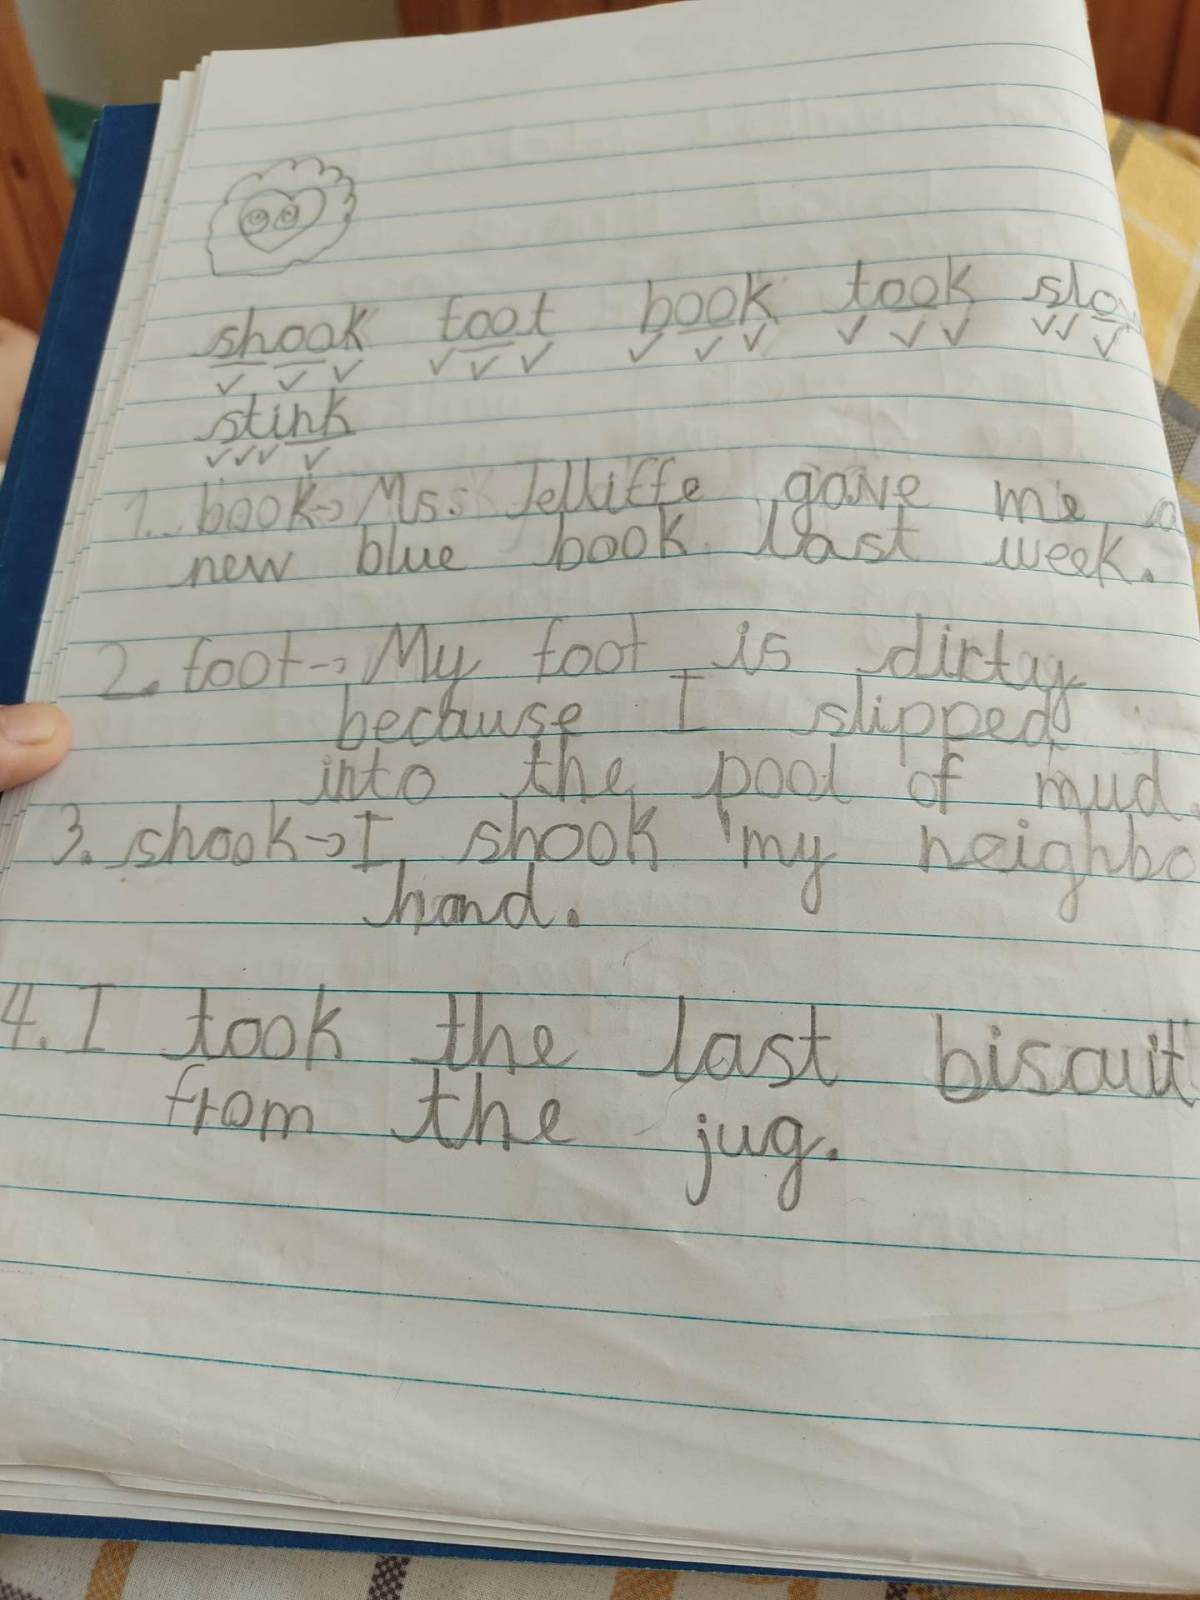 shook foot book took slow
stink
1. book→ Ms. Jelliffe gave me a
new blue book last week.
2. foot→ My foot is dirty
because I slipped
into the pool of mud.
3. shook→ I shook my neighbo
hand.
4. I took the last biscuit
from the jug.